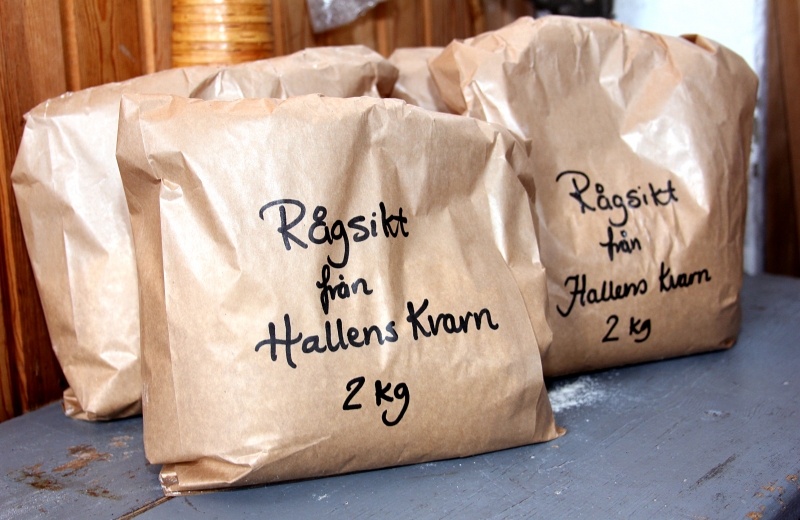 Rågsikt
från
Hallens Kvarn
2 kg
Rågsikt
från
Hallens Kvarn
2 kg